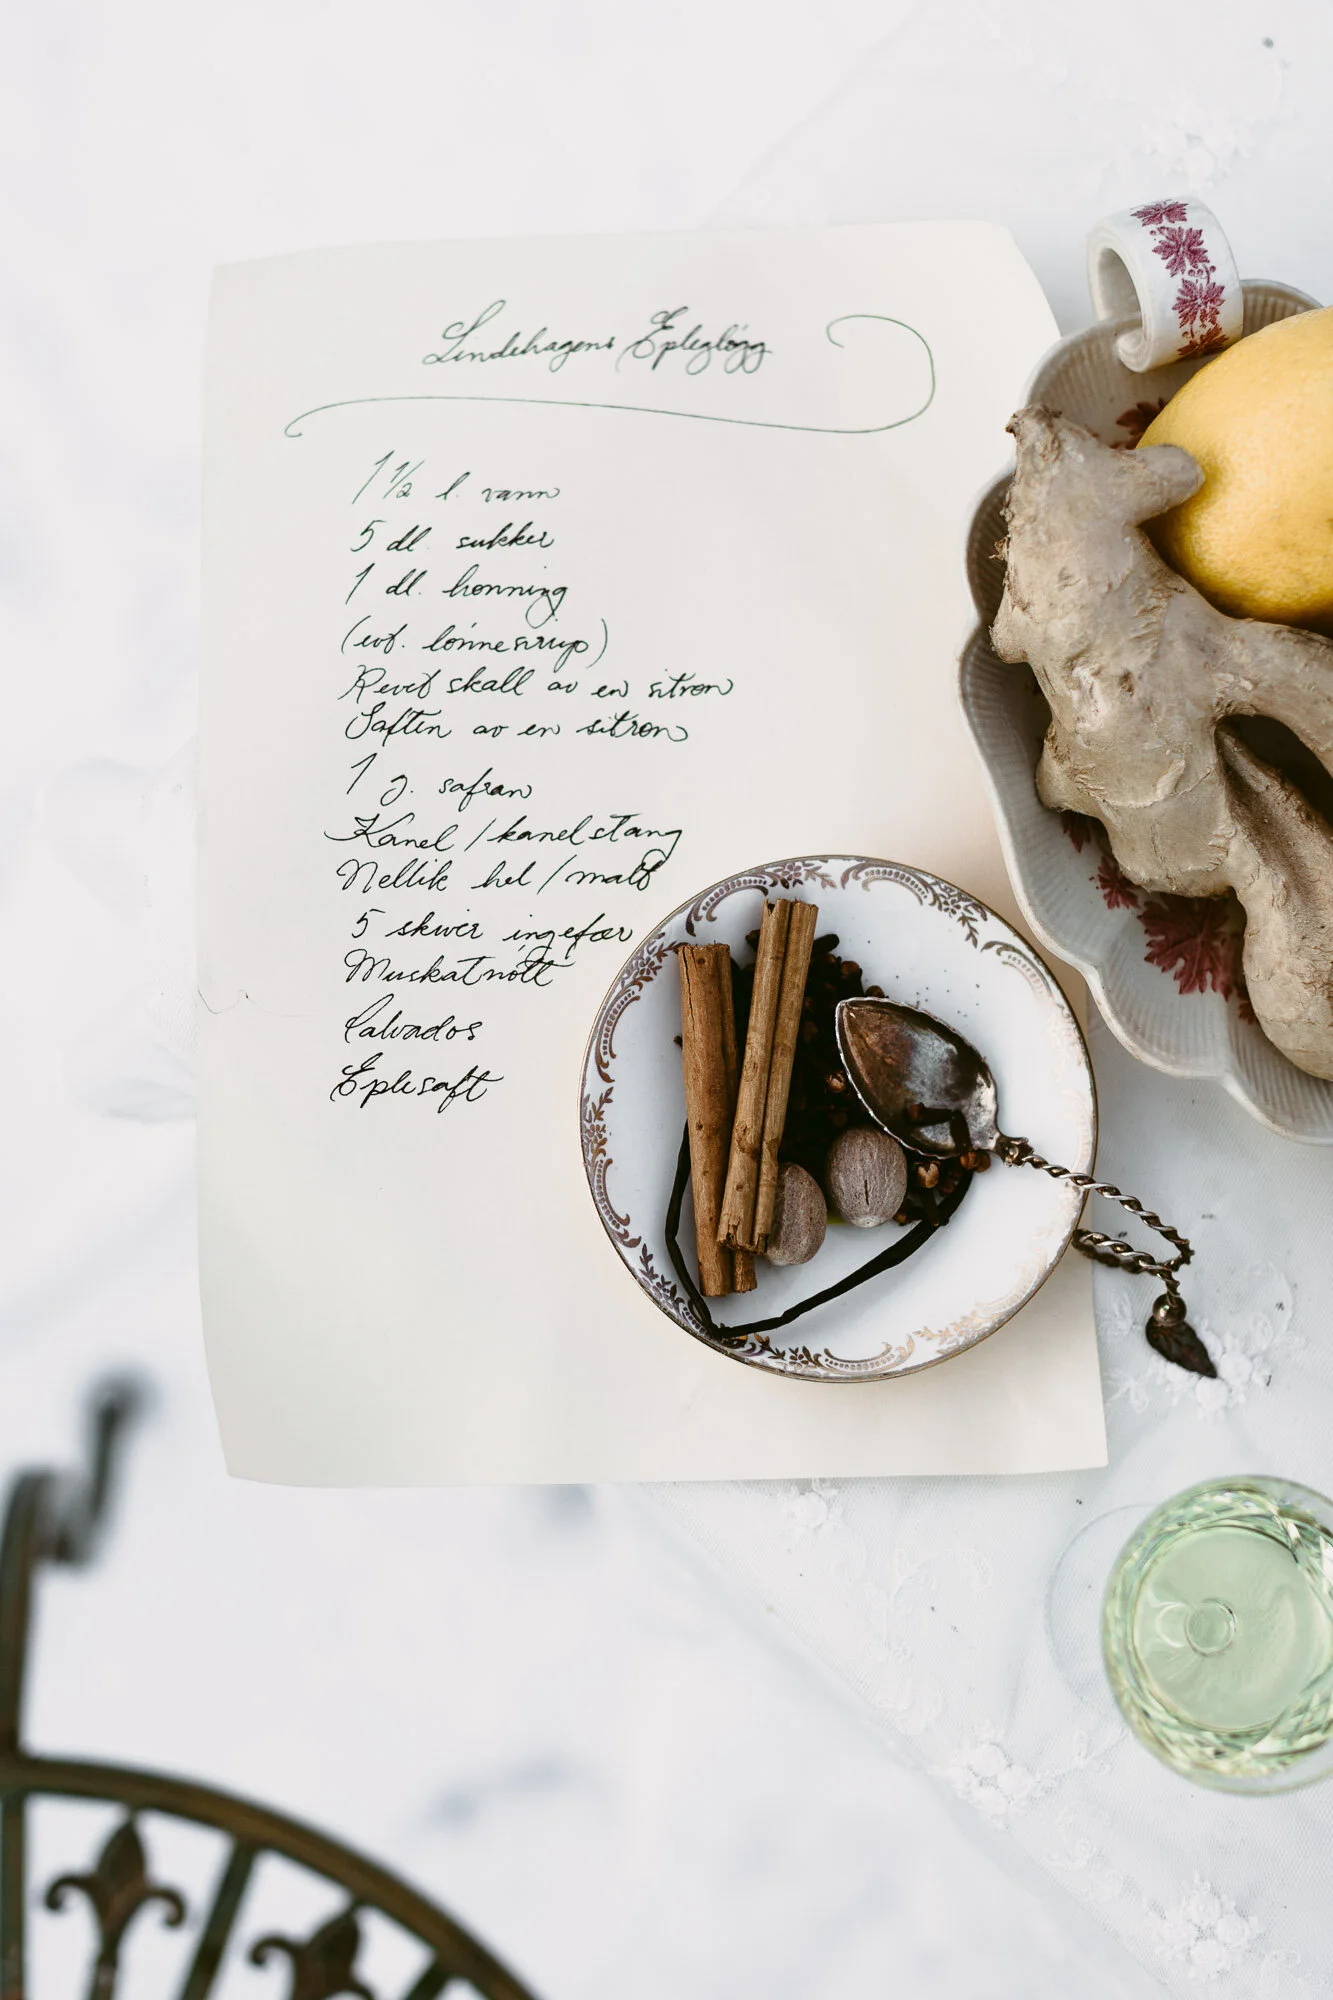 Lindehagens Eplegløgg
1 1/2 l. vann
5 dl. sukker
1 dl. honning
(evt. lønnesirup)
Revet skall av en sitron
Saften av en sitron
1 g. safran
Kanel / kanelstang
Nellik hel / malt
5 skiver ingefær
Muskatnøtt
Calvados
Eplesaft